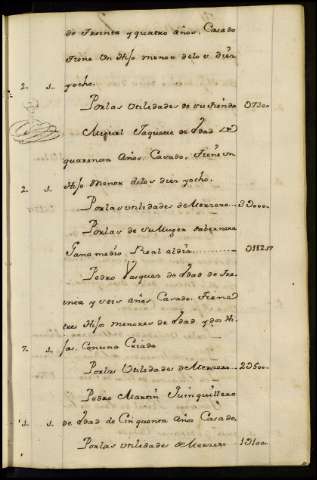 de treinta y quatro años, Casado
tiene un Hijo menor de los diez
2. s. yocho.
Por las Utilidades de su tienda D730
Miguel Jaquete de Edad de
quarenta Años. Casado, tiene un
2. s. Hijo menor de los diez yocho.
Por las utilidades de Merzero 2D000
Por las de su Muger tabernera
Gana medio Real al dia
Pedro Vazquez de Edad de tre
inta y seis años Casado. tiene
tres Hijos menores de Edad y dos Hi
7. s. jas. Con una Criada
Por las Utilidades de Merzero 2D500
Pedro Martin Quinquillero
1. s. de Edad de Cinquenta Años Casado,
Por las Utilidades de Merzero 1D100